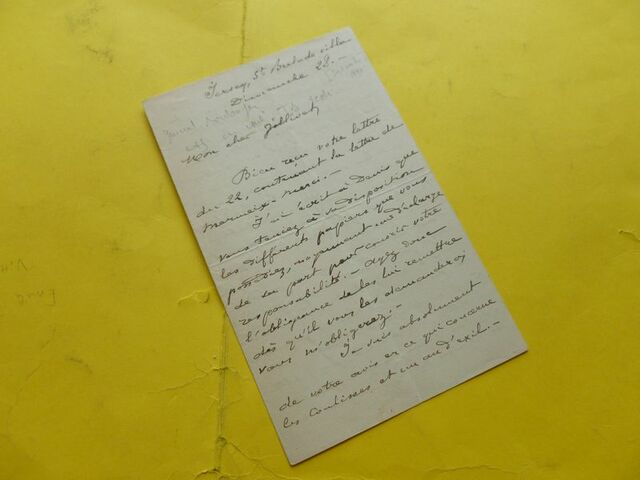 Jersey, St Brelade villa
Dimanche 28.—
Mon cher
Bien reçu votre lettre
du 22, contenant la lettre de
Mermeix – merci.—
J'ai écrit à Denis que
vous teniez à sa disposition
les différents papiers que vous
possédiez, moyennant une décharge
de sa part pour couvrir votre
responsabilité.— Ayez donc
l'obligeance de les lui remettre
dès qu'il vous les demandera;
vous m'obligerez.—
Je suis absolument
de votre avis en ce qui concerne
les Coulisses et un an d'exil.—